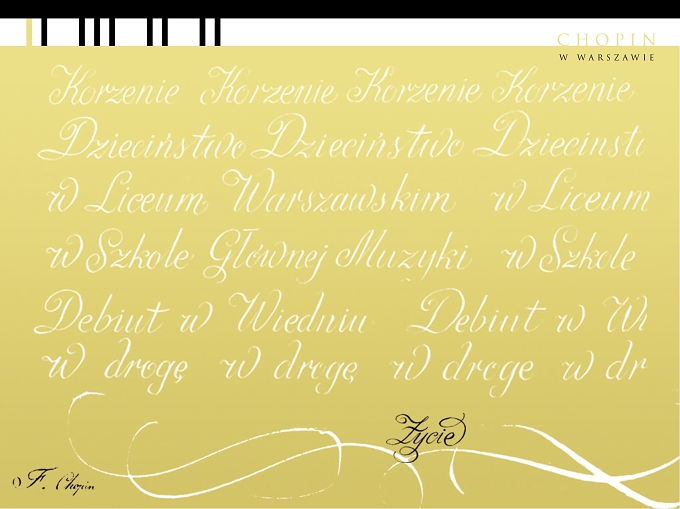 CHOPIN
W WARSZAWIE
Korzenie Korzenie Korzenie Korzenie
Dzieciństwo Dzieciństwo Dzieciństw
w Liceum Warszawskim w Liceum
w Szkole Głównej Muzyki w Szkole
Debiut w Wiedniu Debiut w Wi
w drogę w drogę w drogę w dr
Życie
F. Chopin